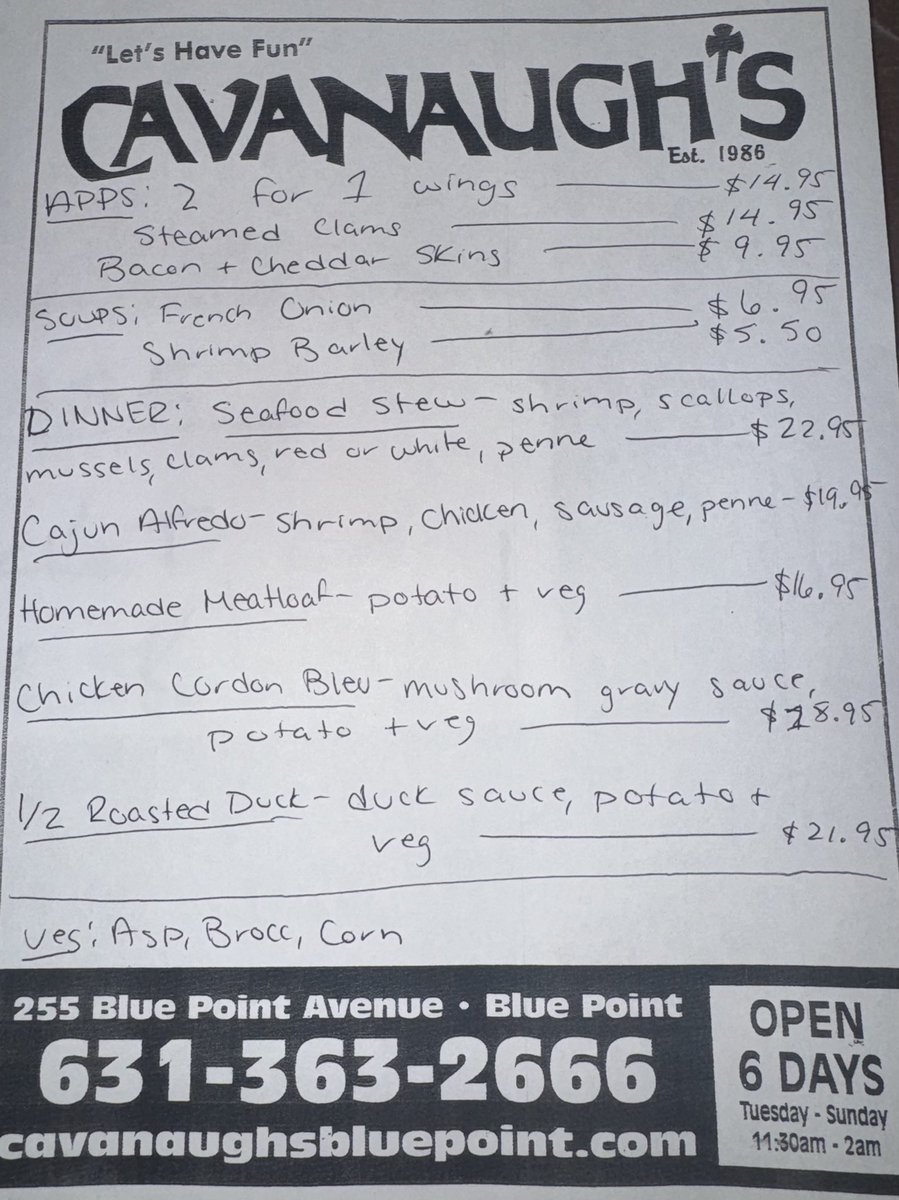 "Let's Have Fun"
CAVANAUGH'S
Est. 1986
APPS: 2 for 1 wings — $14.95
Steamed Clams — $14.95
Bacon + Cheddar Skins — $9.95
SOUPS: French Onion — $6.95
Shrimp Barley — $5.50
DINNER: Seafood Stew - shrimp, scallops,
mussels, clams, red or white, penne — $22.95
Cajun Alfredo - shrimp, chicken, sausage, penne - $19.95
Homemade Meatloaf - potato + veg — $16.95
Chicken Cordon Bleu - mushroom gravy sauce,
potato + veg — $18.95
1/2 Roasted Duck - duck sauce, potato +
veg — $21.95
veg: Asp, Brocc, Corn
255 Blue Point Avenue • Blue Point
631-363-2666
cavanaughsbluepoint.com
OPEN
6 DAYS
Tuesday - Sunday
11:30am - 2am